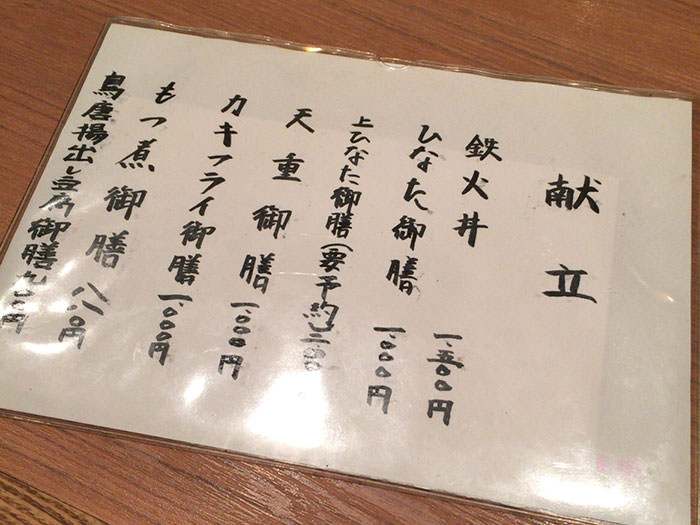 献立
鉄火丼 一、五〇〇円
ひなた御膳 一、〇〇〇円
上ひなた御膳(要予約)二、〇〇
天重御膳 一、〇〇〇円
カキフライ御膳 一、〇〇〇円
もつ煮御膳 八八〇円
鳥唐揚出し豆腐御膳 九〇〇円